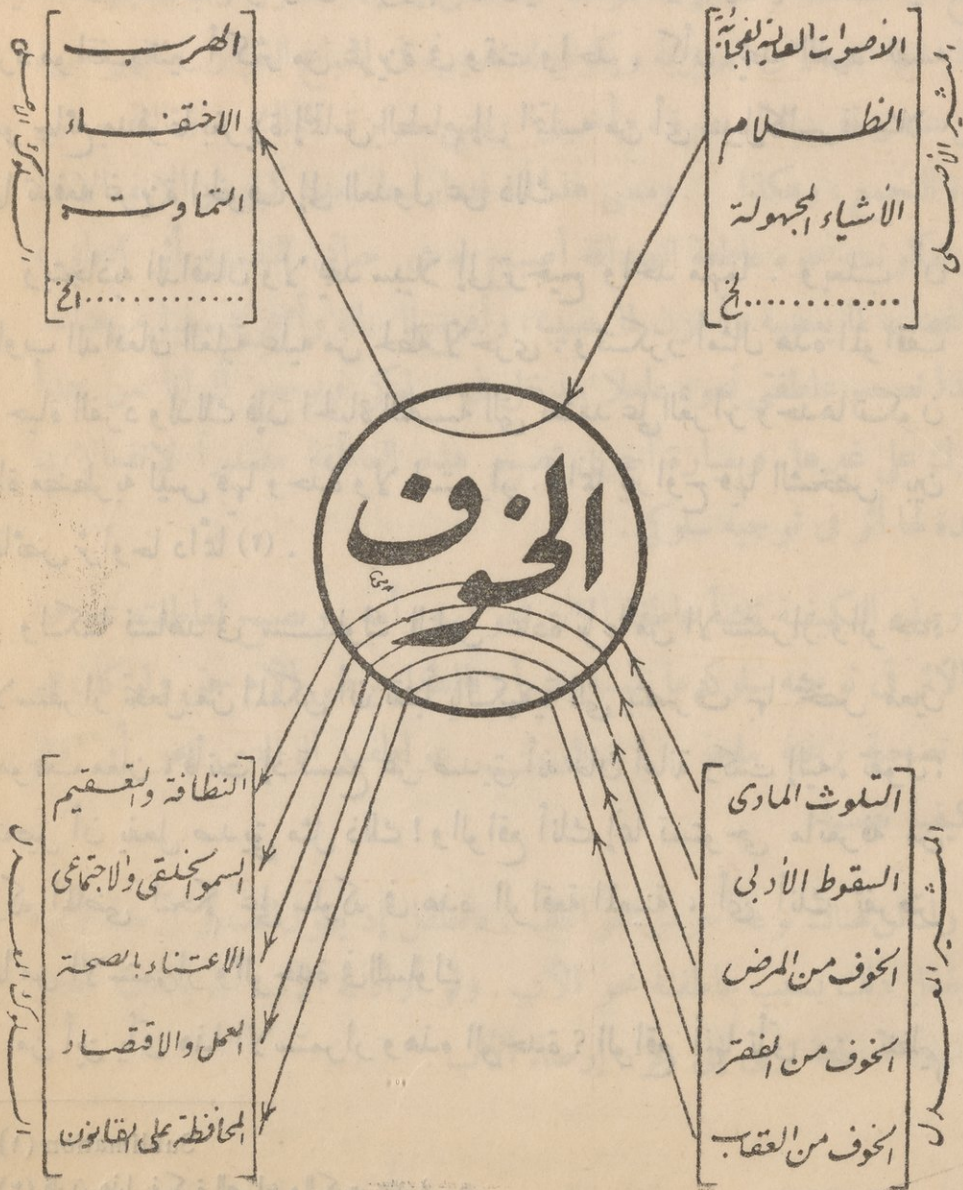 المثير الأصلى
الأصوات العالية الفجائية
الظلام
الأشياء المجهولة
............ الخ
السلوك الأصلى
الهرب
الاختفاء
التماوت
............ الخ
الخوف
المثير المعدل
التلوث المادى
السقوط الأدبى
الخوف من المرض
الخوف من الفقر
الخوف من العقاب
السلوك المعدل
النظافة والتعقيم
السمو الخلقى والاجتماعى
الاعتناء بالصحة
العمل والاقتصاد
المحافظة على القانون